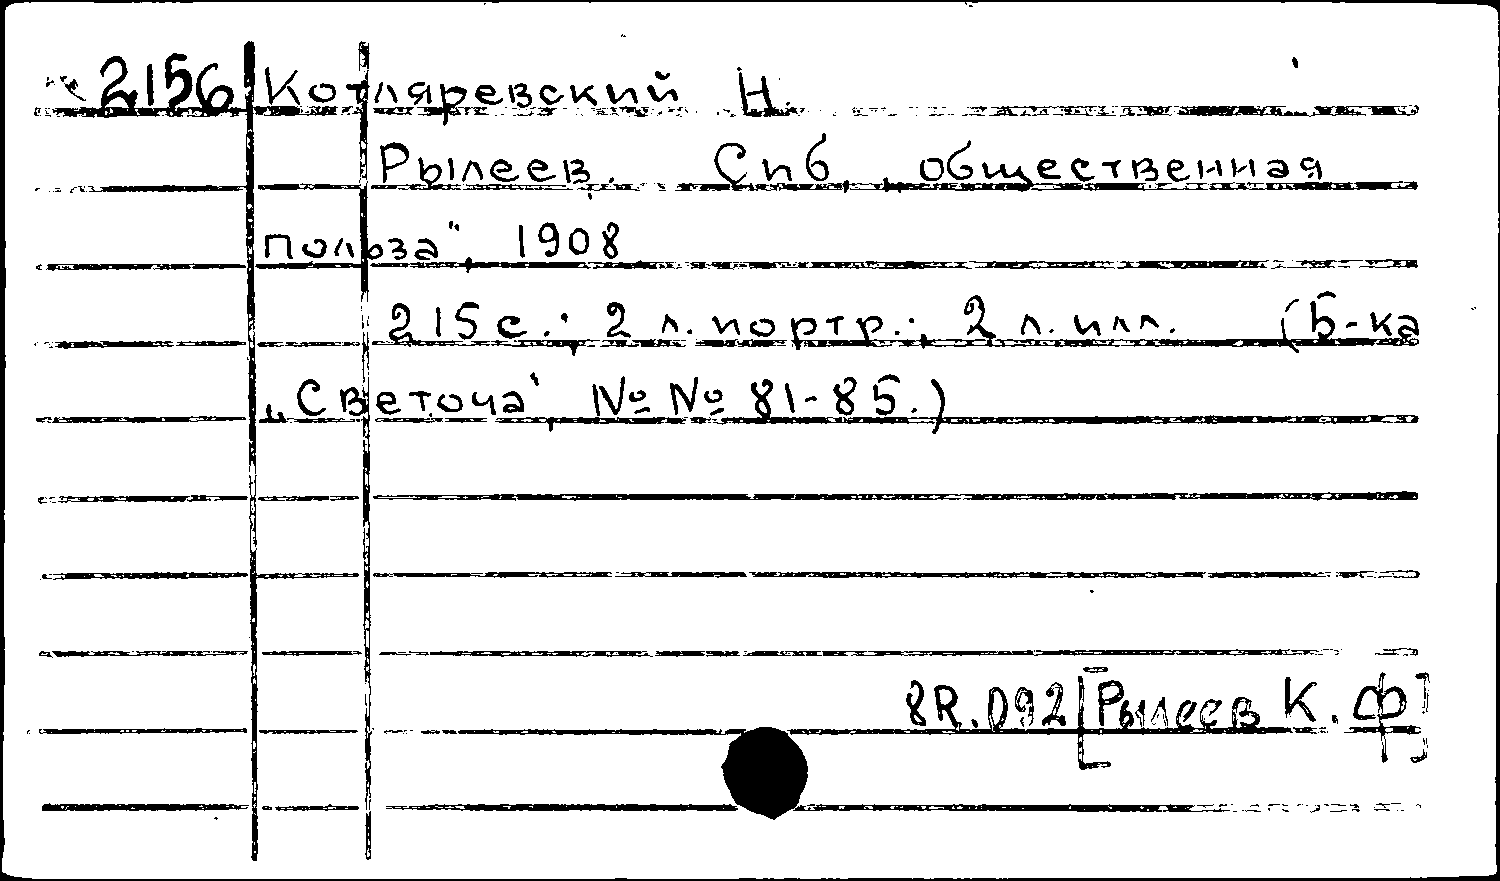 2156 Котляревский Н.
Рылеев. Спб, „общественная
польза", 1908
215 с.; 2 л. портр.; 2 л. илл. (Б-ка
„Светоча", №№ 81-85.)
8R.092 [Рылеев К.Ф]